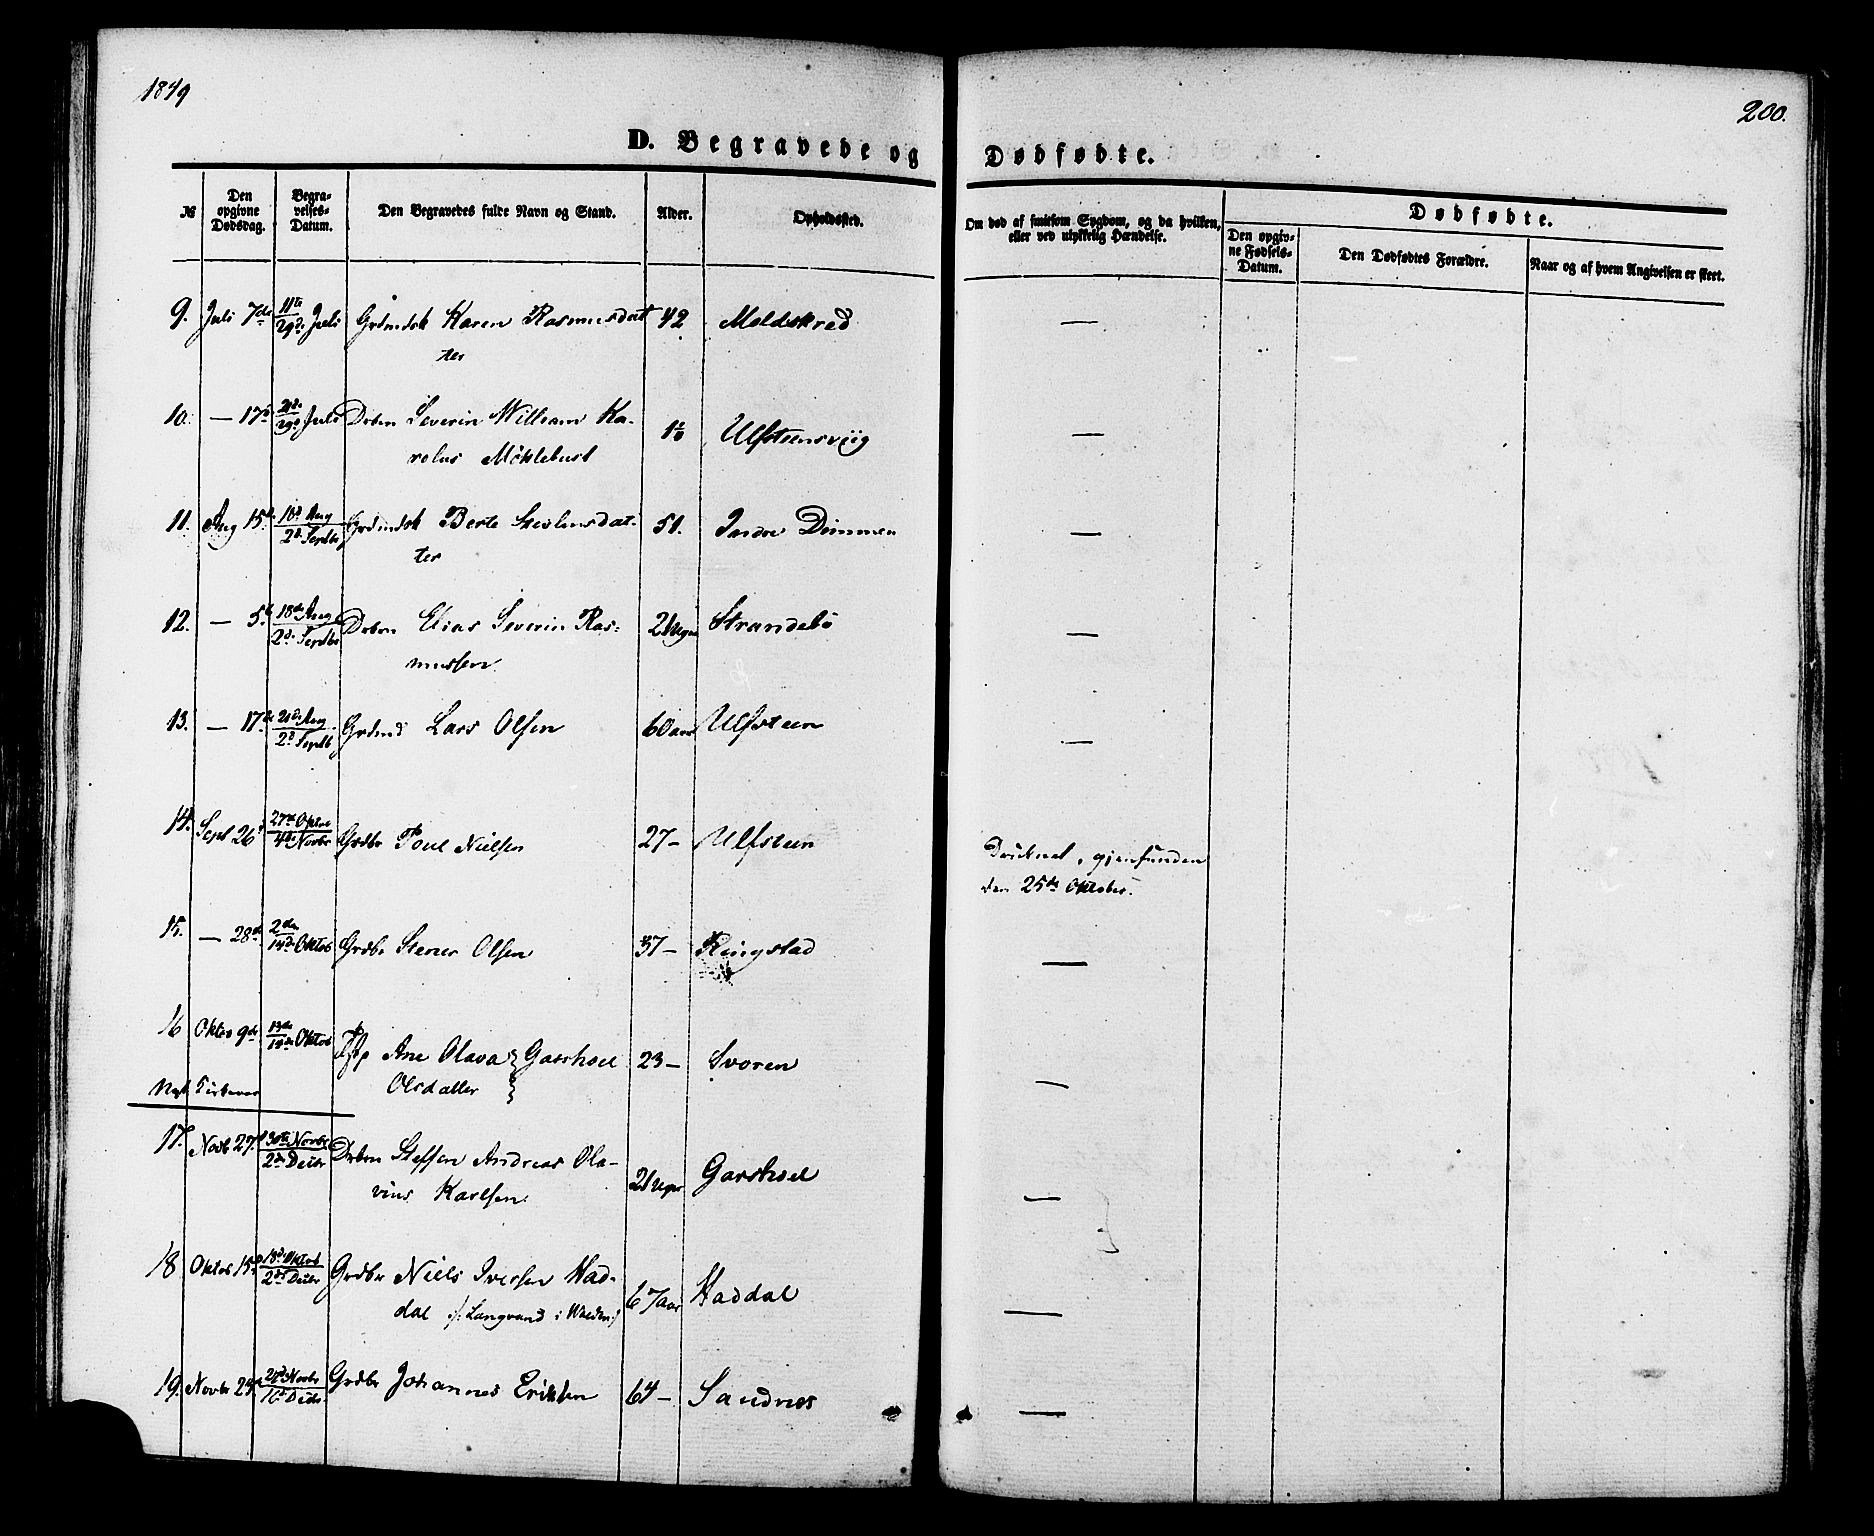 1849
200.
D. Begravede og Dødfødte.
№
Den opgivne Dødsdag.
Begravelses-Datum.
Den Begravedes fulde Navn og Stand.
Alder.
Opholdssted.
Om død af smitsom Sygdom, og da hvilken,
eller ved ulykkelig Hændelse.
Dødfødte.
Den opgivne Fødsels-Datum.
Den Dødfødtes Forældre.
Naar og af hvem Angivelsen er skeet.
9. Juli 7de 11te/29de Juli Grdmdsk Karen Rasmusdat 42 Moldskred —
ter
10. — 17de 21de/29de Juli Drbn Severin William Ka- Ulfsteensviig —
rolus Möklebust
11. Aug 15de 18de Aug/2de Septbr Grdmdsk Berte Steolusdat- 51. Indre Dimmen —
ter
12. — 5te 18de Aug/2de Septbr Drbn Elias Severin Ras- 2 Uger Strandebö —
mussen
13. — 17de 21de Aug/2de Septb Grdmd Lars Olsen 60 aar Ulfsteen —
14. Sept 26de 27de Oktbr/4de Novbr Grdbr Poul Nielsen 27 — Ulfsteen Druknet, gjenfunden
den 25de Oktober.
15. — 28de 2den/14de Oktob Grdbr Stener Olsen 37 — Ringstad —
16 Oktbr 9de 13de/14de Oktob Ane Olava Garshoel 23 — Svoren —
Olsdatter
Nyt Kirkeaar
17. Novb 27de 30te Novbr/2den Decbr Drbn Steffen Andreas Ola- 2 Uger Garshoel —
vius Karlsen
18 Oktob 15de 18de Oktob/2den Decbr Grdbr Niels Iversen Had- 67 aar Haddal —
dal /: Langvand i Volden :/
19. Novbr 27de Novbr/16de Decbr Grdbr Johannes Eriksen 64 — Sandnes —